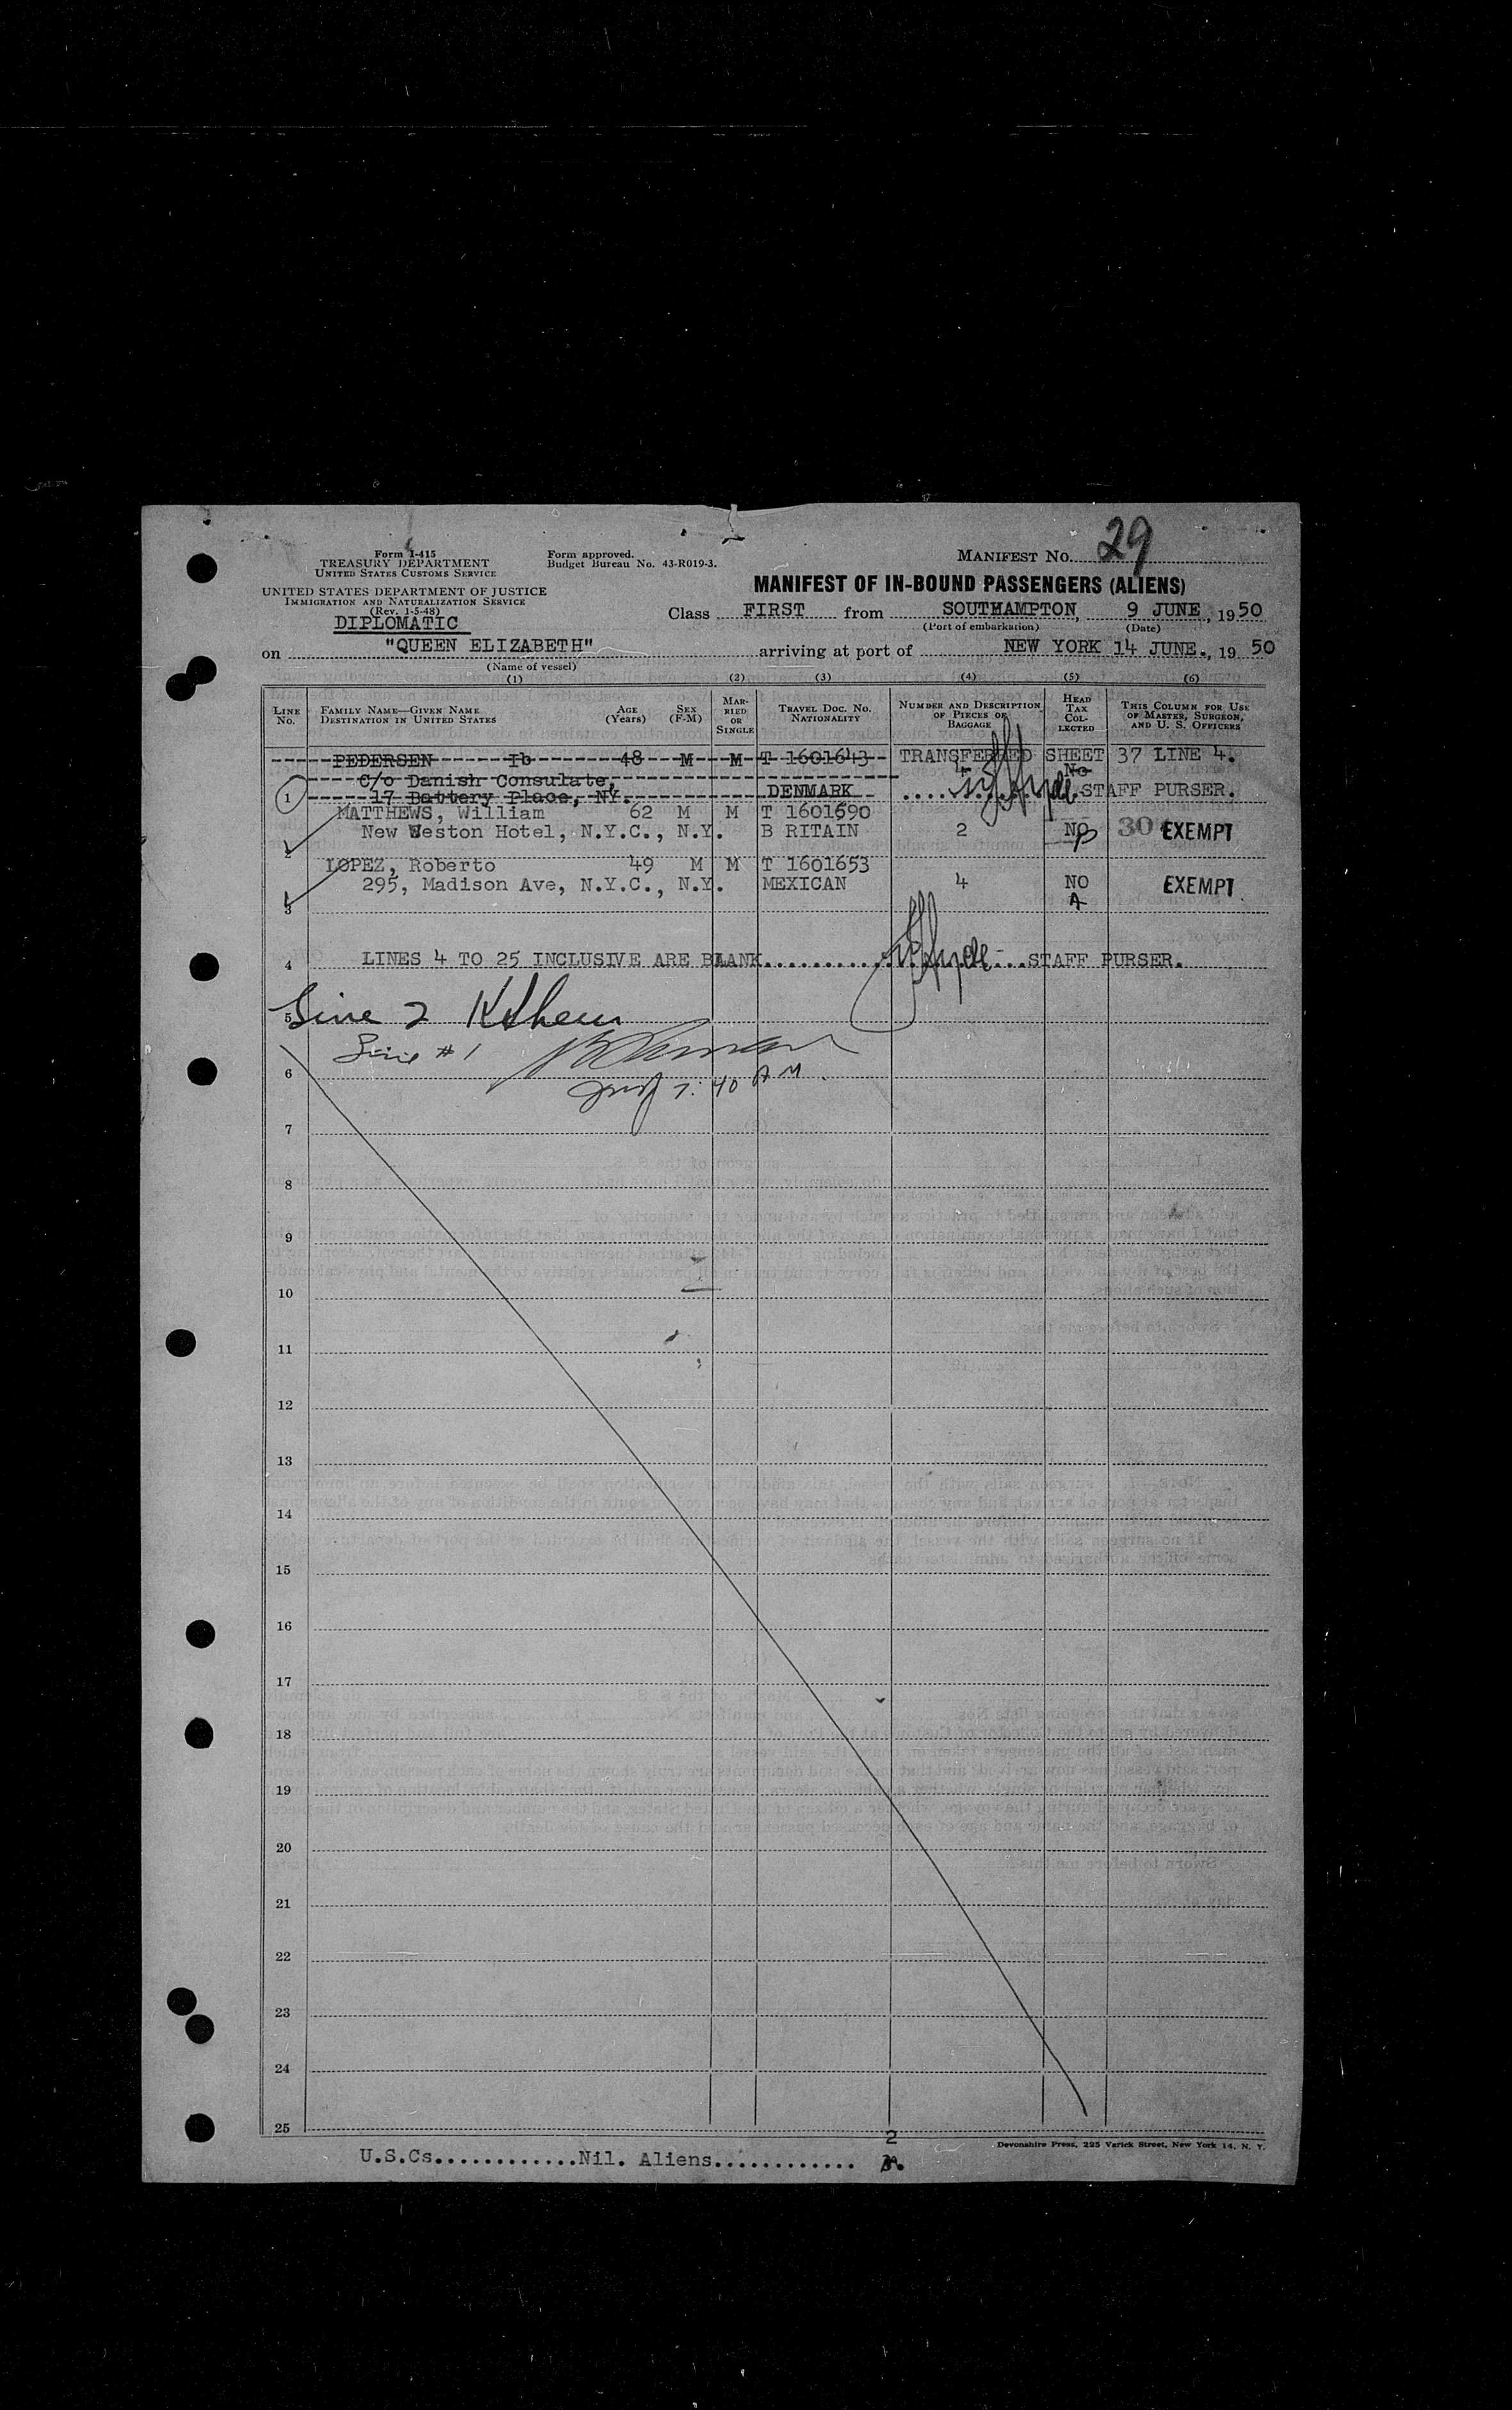 29
Form I-415
TREASURY DEPARTMENT
UNITED STATES CUSTOMS SERVICE
Form approved.
Budget Bureau No. 43-R019-3.
MANIFEST NO. 29
UNITED STATES DEPARTMENT OF JUSTICE
IMMIGRATION AND NATURALIZATION SERVICE
(Rev. 1-5-48)
MANIFEST OF IN-BOUND PASSENGERS (ALIENS)
DIPLOMATIC
Class FIRST from SOUTHAMPTON, 9 JUNE, 1950
(Port of embarkation) (Date)
on "QUEEN ELIZABETH" arriving at port of NEW YORK 14 JUNE., 19 50
(Name of vessel)
(1) (2) (3) (4) (5) (6)
LINE NO. FAMILY NAME—GIVEN NAME DESTINATION IN UNITED STATES AGE (Years) SEX (F-M) MARRIED OR SINGLE TRAVEL DOC. NO. NATIONALITY NUMBER AND DESCRIPTION OF PIECES OF BAGGAGE HEAD TAX COLLECTED THIS COLUMN FOR USE OF MASTER, SURGEON, AND U. S. OFFICERS
PEDERSEN Ib 48 M M T 1601643 TRANSFERRED SHEET 37 LINE 4.
C/o Danish Consulate, 4 No
1 17 Battery Place, NY. DENMARK STAFF PURSER.
MATTHEWS, William 62 M M T 1601590
New Weston Hotel, N.Y.C., N.Y. B RITAIN 2 NO 30 EXEMPT
2
LOPEZ, Roberto 49 M M T 1601653
295, Madison Ave, N.Y.C., N.Y. MEXICAN 4 NO EXEMPT
3
4 LINES 4 TO 25 INCLUSIVE ARE BLANK. STAFF PURSER.
5 Line 2
Line # 1
6
7:40 AM.
7
8
9
10
11
12
13
14
15
16
17
18
19
20
21
22
23
24
25
Devonshire Press, 225 Varick Street, New York 14, N. Y.
U.S.Cs.............Nil. Aliens............. 2